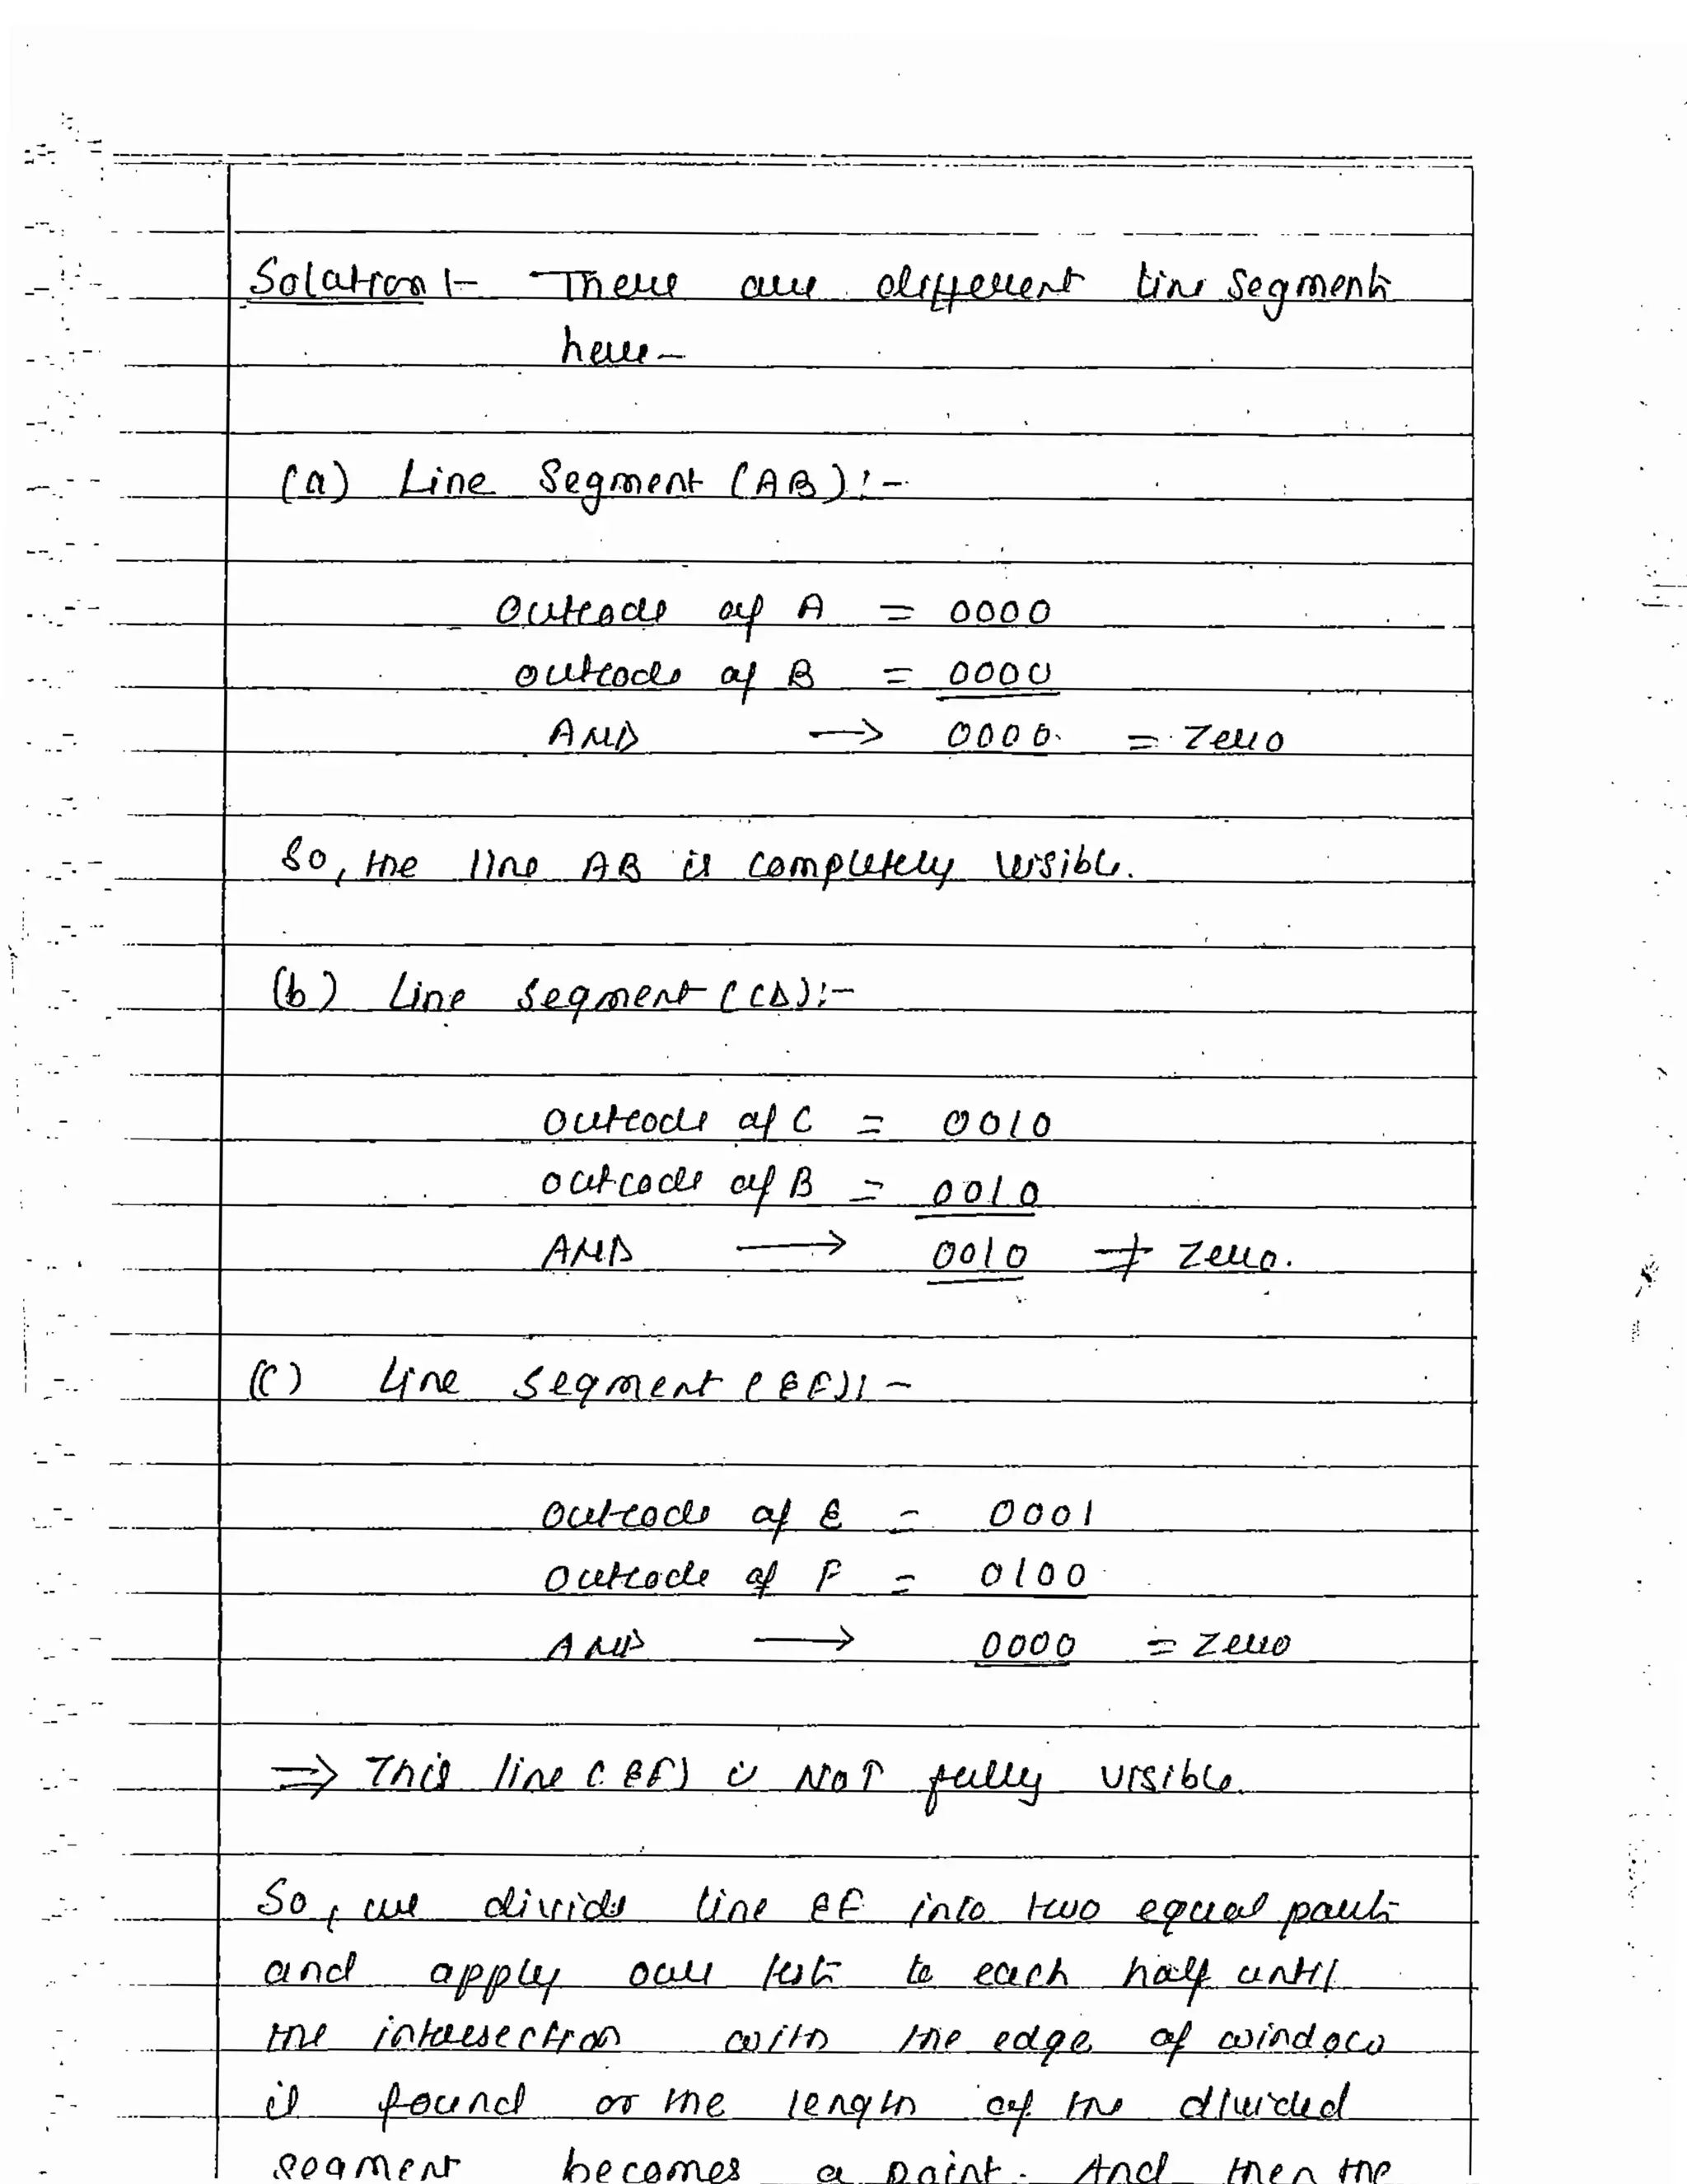 Solution :- There are different line segments
here -
(a) Line Segment (AB) :-
Outcode of A = 0000
outcode of B = 0000
AND → 0000 = Zero
So, the line AB is completely visible.
(b) Line Segment (CD) :-
Outcode of C = 0010
outcode of B = 0010
AND → 0010 ≠ Zero.
(c) Line Segment (EF) :-
Outcode of E = 0001
Outcode of F = 0100
AND → 0000 = Zero
⇒ This line (EF) is NOT fully visible.
So, we divide line EF into two equal parts
and apply our test to each half until
the intersection with the edge of window
is found or the length of the divided
segment becomes a point. And then the